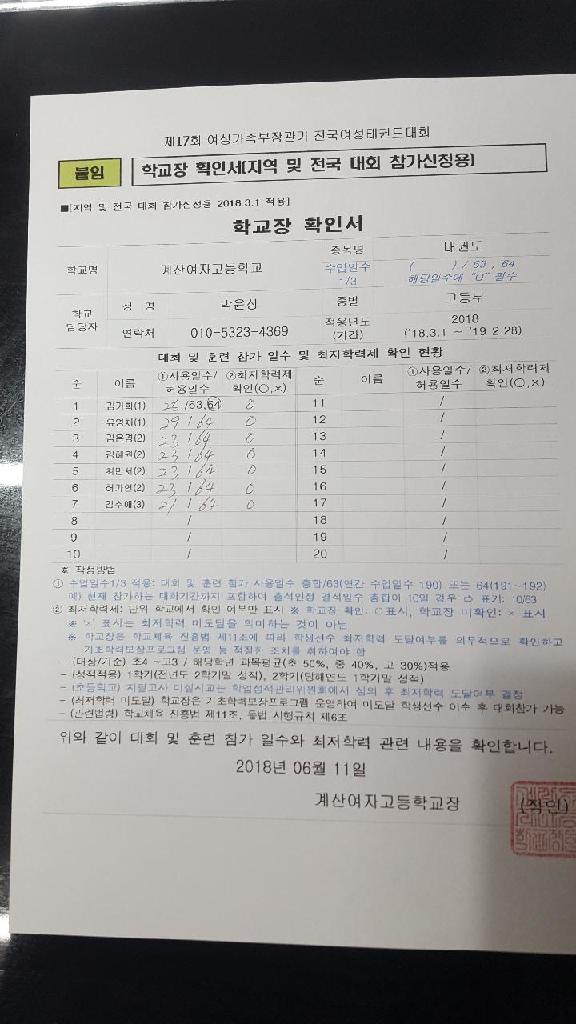 제17회 여성가족부장관기 전국여성태권도대회
붙임
학교장 확인서[지역 및 전국 대회 참가신청용]
■[지역 및 전국 대회 참가신청용 2018.3.1 적용]
학교장 확인서
학교명 계산여자고등학교
종목명 태권도
수업일수 1/3
( ) / 63, 64
해당일수에 "O" 필수
학교 담당자
성 명
종별 고등부
연락처 010-5323-4369
적용년도 (기간)
2018
('18.3.1 ~ '19.2.28)
대회 및 훈련 참가 일수 및 최저학력제 확인 현황
순 이름 ①사용일수/허용일수 ②최저학력제 확인(○,×) 순 이름 ①사용일수/허용일수 ②최저학력제 확인(○,×)
1 (1) /63,64 0 11 /
2 (1) 29 / 64 0 12 /
3 (2) 23 / 64 0 13 /
4 (2) 23 / 64 0 14 /
5 (2) 23 / 64 0 15 /
6 (2) 23 / 64 0 16 /
7 (3) / 64 0 17 /
8 / 18 /
9 / 19 /
10 / 20 /
※ 작성방법
① 수업일수1/3 적용: 대회 및 훈련 참가 사용일수 총합/63(연간 수업일수 190) 또는 64(191~192)
예) 현재 참가하는 대회기간까지 포함하여 출석인정 결석일수 총합이 10일 경우 ⇨ 표기: 10/63
② 최저학력제: 단위 학교에서 확인 여부만 표시 ※ 학교장 확인: ○표시, 학교장 미확인: × 표시
※ '×' 표시는 최저학력 미도달을 의미하는 것이 아님
※ 학교장은 학교체육 진흥법 제11조에 따라 학생선수 최저학력 도달여부를 의무적으로 확인하고
기초학력보장프로그램 운영 등 적절한 조치를 취하여야 함
- (대상/기준) 초4 ~고3 / 해당학년 과목평균(초 50%, 중 40%, 고 30%)적용
- (성적적용) 1학기(전년도 2학기말 성적), 2학기(당해연도 1학기말 성적)
- (초등학교) 지필고사 미실시교는 학업성적관리위원회에서 심의 후 최저학력 도달여부 결정
- (최저학력 미도달) 학교장은 기초학력보장프로그램 운영하여 미도달 학생선수 이수 후 대회참가 가능
- (관련법령) 학교체육 진흥법 제11조, 동법 시행규칙 제6조
위와 같이 대회 및 훈련 참가 일수와 최저학력 관련 내용을 확인합니다.
2018년 06월 11일
계산여자고등학교장 (직인)